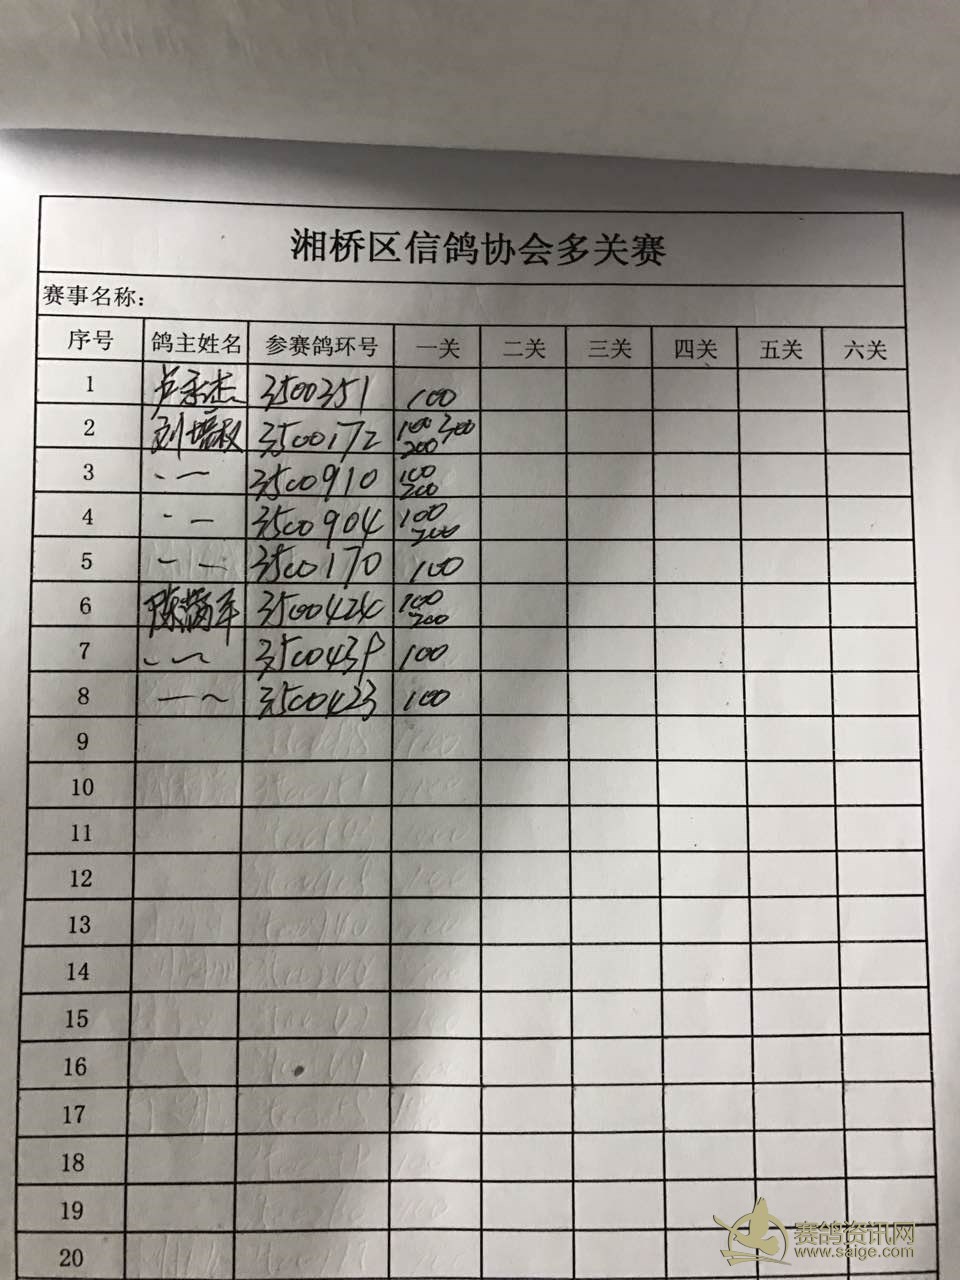 湘桥区信鸽协会多关赛
赛事名称:
序号 鸽主姓名 参赛鸽环号 一关 二关 三关 四关 五关 六关
1 3500351 100
2 刘培权 3500172 100 300 200
3 3500910 100 200
4 3500904 100 200
5 3500170 100
6 3500424 100 200
7 100
8 3500423 100
9
10
11
12
13
14
15
16
17
18
19
20
赛鸽资讯网
www.saige.com